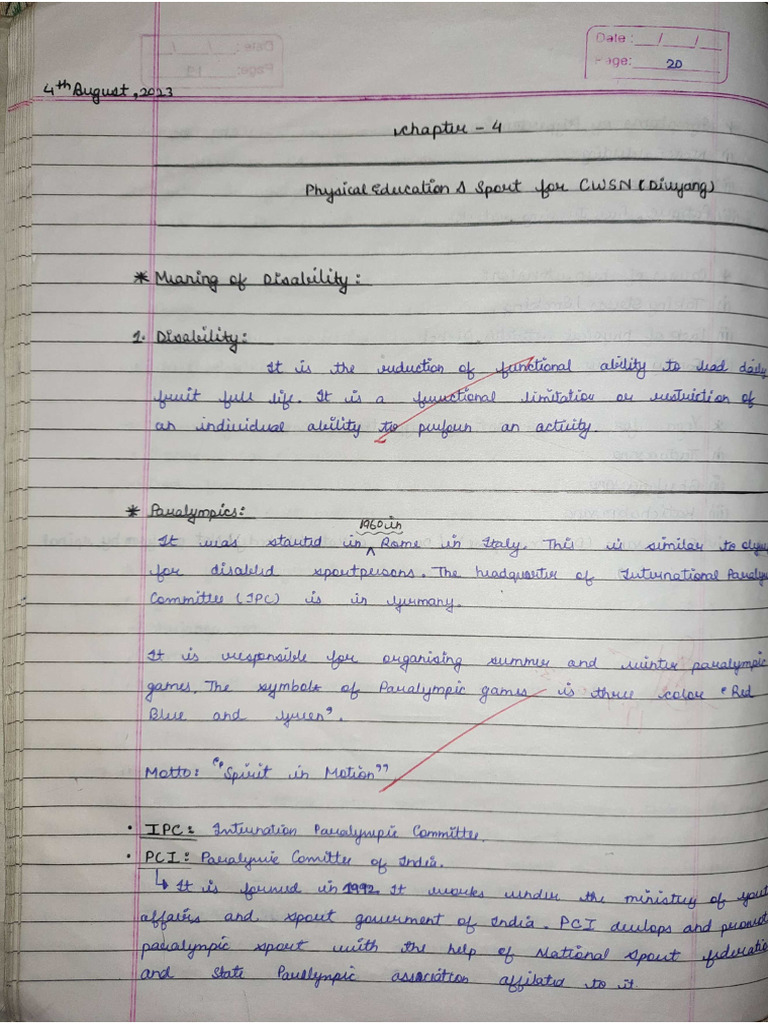 Date : __/__/__
Page: 20
4th August, 2023
Chapter - 4
Physical Education & Sport for CWSN (Divyang)
* Meaning of Disability:
1. Disability:
It is the reduction of functional ability to lead daily
fruit full life. It is a functional limitation or restriction of
an individual ability to perfoun an activity.
* Paralympics:
1960 in
It was started in ^ Rome in Italy. This is similar to olym
for disabled sportpersons. The headquarter of International Paralym
Committee (IPC) is in Germany.
It is responsible for organising summer and winter paralympic
games. The symbols of Paralympic games is three color "Red
Blue and Green".
Motto: "Spirit in Motion"
• IPC: Internation Paralympic Committee.
• PCI: Paralymic Comitter of India.
↳ It is formed in 1992. It works under the ministry of yout
affairs and sport goverment of India. PCI develops and promot
paralympic sport with the help of National Sport federatio
and State Parallympic association affiliated to it.